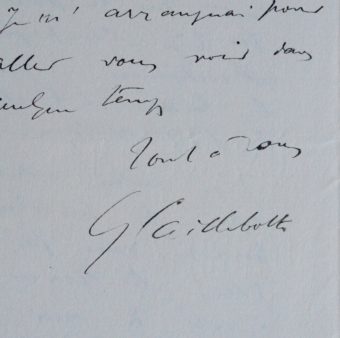 je m'arrangerai pour
aller vous voir dans
quelque temps
Tout à vous
G Caillebotte